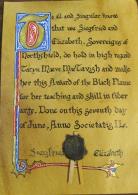 To all and Singular Know
That we Siegfried and
Elizabeth, Sovereigns of
Northshield, do hold in high regard
Taryn Maeve MacTavish and make
her this Award of the Black Flame
for her teaching and skill in fiber
arts. Done on this seventh day
of June, Anno Societatis
Siegfried Elizabeth